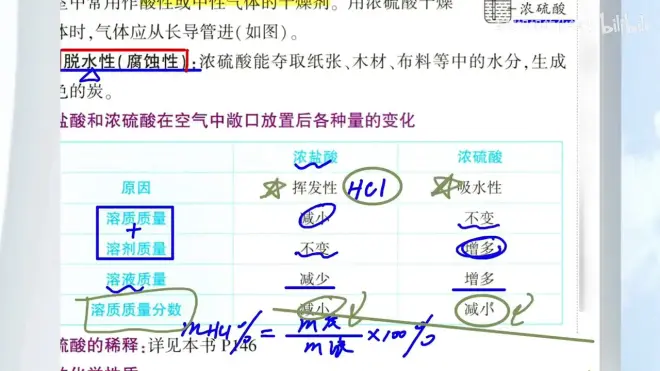 室中常用作酸性或中性气体的干燥剂。用浓硫酸干燥
浓硫酸
体时,气体应从长导管进(如图)。
bilibili
脱水性(腐蚀性):浓硫酸能夺取纸张、木材、布料等中的水分,生成
色的炭。
盐酸和浓硫酸在空气中敞口放置后各种量的变化
浓盐酸 浓硫酸
原因 挥发性 HCl 吸水性
溶质质量 减小 不变
+
溶剂质量 不变 增多
溶液质量 减少 增多
溶质质量分数 减小 减小
mHCl% = m质/m液 ×100%
硫酸的稀释:详见本书P146